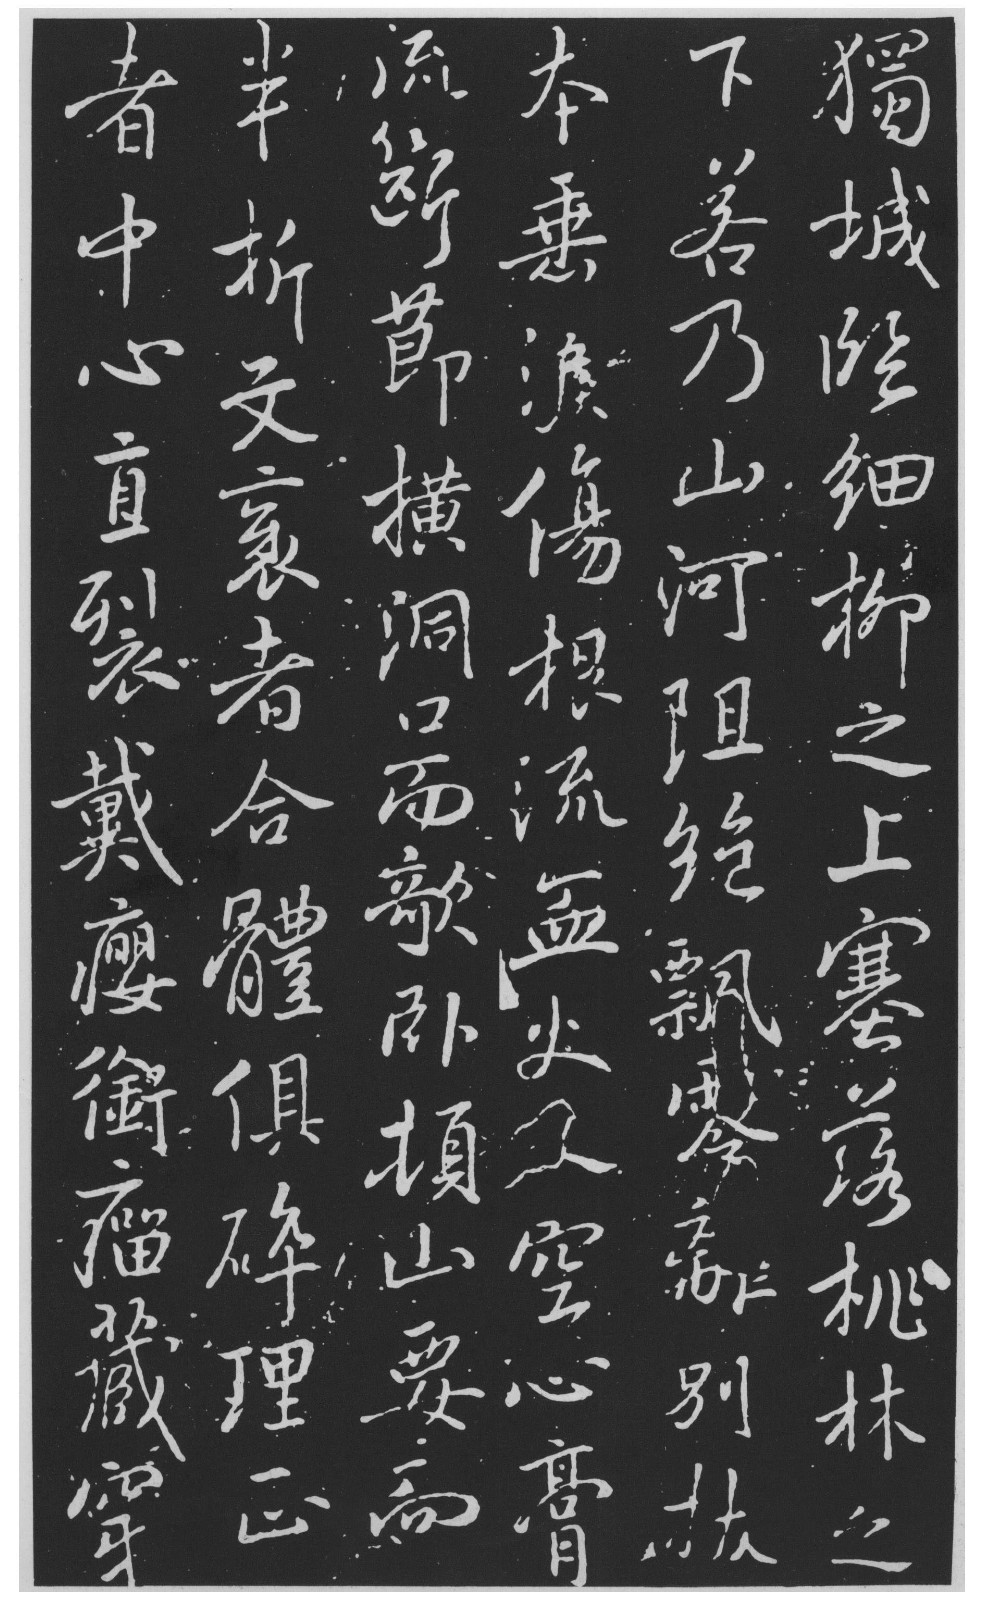 獨城臨細柳之上塞落桃林之
下若乃山河阻絶飄零離別拔
本垂淚傷根流血火入空心膏
流斷節橫洞口而欹臥頓山要而
半折文裏者合體俱碎理正
者中心直裂戴癭銜瘤藏穿